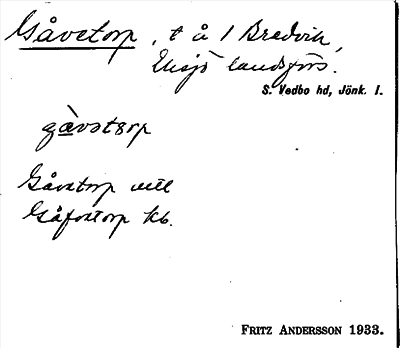 Gåvetorp, t å 1 Bredvik,
Eksjö landsförs.
S. Vedbo hd, Jönk. l.
gåvatorp
Gåvatorp
Gåfvetorp kb.
FRITZ ANDERSSON 1933.